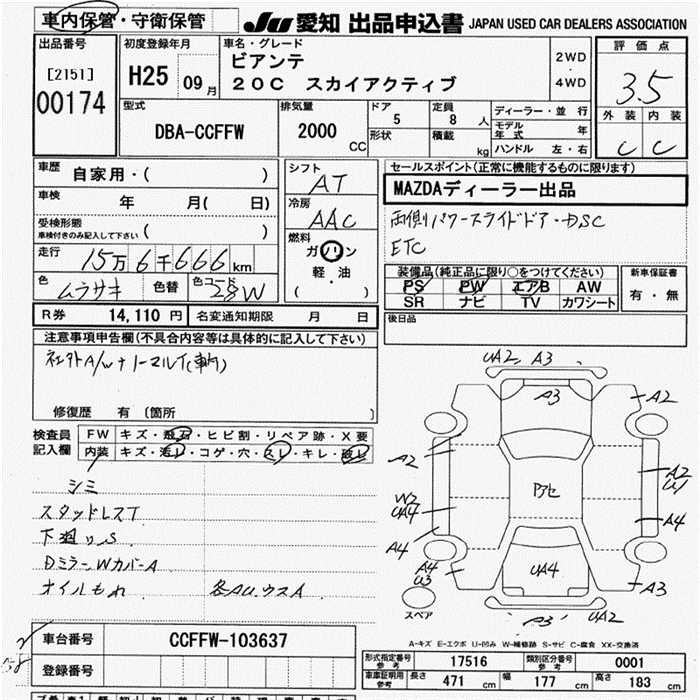 車内保管・守衛保管 JU 愛知 出品申込書 JAPAN USED CAR DEALERS ASSOCIATION
出品番号 初度登録年月 車名・グレード 評価点
[2151] H25 09月 ビアンテ 2WD
00174 20C スカイアクティブ 4WD 3.5
型式 排気量 ドア 定員 ディーラー・並行 外装 内装
DBA-CCFFW 2000 CC 5 8人 モデル年式 年 C C
形状 積載 kg ハンドル 左・右
車歴 自家用・( ) シフト AT セールスポイント(正常に機能するものに限ります)
車検 年 月( 日) 冷房 AAC MAZDAディーラー出品
受検形態 ( ) 燃料 両側パワースライドドア・DSC
車検付きのみ記入して下さい ガソリン ETC
走行 15万6千666km 軽・油 装備品(純正品に限り○をつけてください) 新車保証書
色 ムラサキ 色替 色コード 28W ( ) PS PW エアB AW 有・無
SR ナビ TV カワシート
R券 14,110円 名変通知期限 月 日 後日品
注意事項申告欄(不具合内容等は具体的に記入して下さい)
社外A/w+ノーマルT(車内)
修復歴 有 〔箇所 〕
検査員記入欄 FW キズ・飛石・ヒビ割・リペア跡・X要
内装 キズ・汚レ・コゲ・穴・スレ・キレ・破レ
シミ
スタッドレスT
下廻りS
DミラーWカバーA
オイルもれ 各AU.ウスA
UA2 A3
A3 A2
A2 A2
U1
W2
UA4 A4
A4
A4
U3 UA4 A3
スペア A3 UA2
A-キズ E-エクボ U-凹み W-補修跡 S-サビ C-腐食 XX-交換済
車台番号 CCFFW-103637
登録番号
形式指定番号 参考 17516 類別区分番号 参考 0001
車庫証明用 参考 長さ 471 cm 幅 177 cm 高さ 183 cm